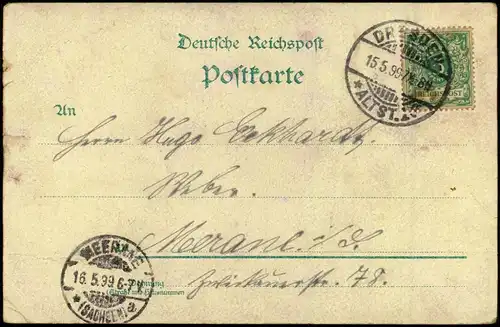 Deutsche Reichspost
Postkarte
DRESDEN
15.5.99
*ALTST.
An
Herrn Hugo Eckhardt,
Weber.
Meerane i/S.
Zwickauerstr. 78.
Wohnung
(Straße und Hausnummer)
MEERANE
16.5.99 6-7
*(SACHSEN) a